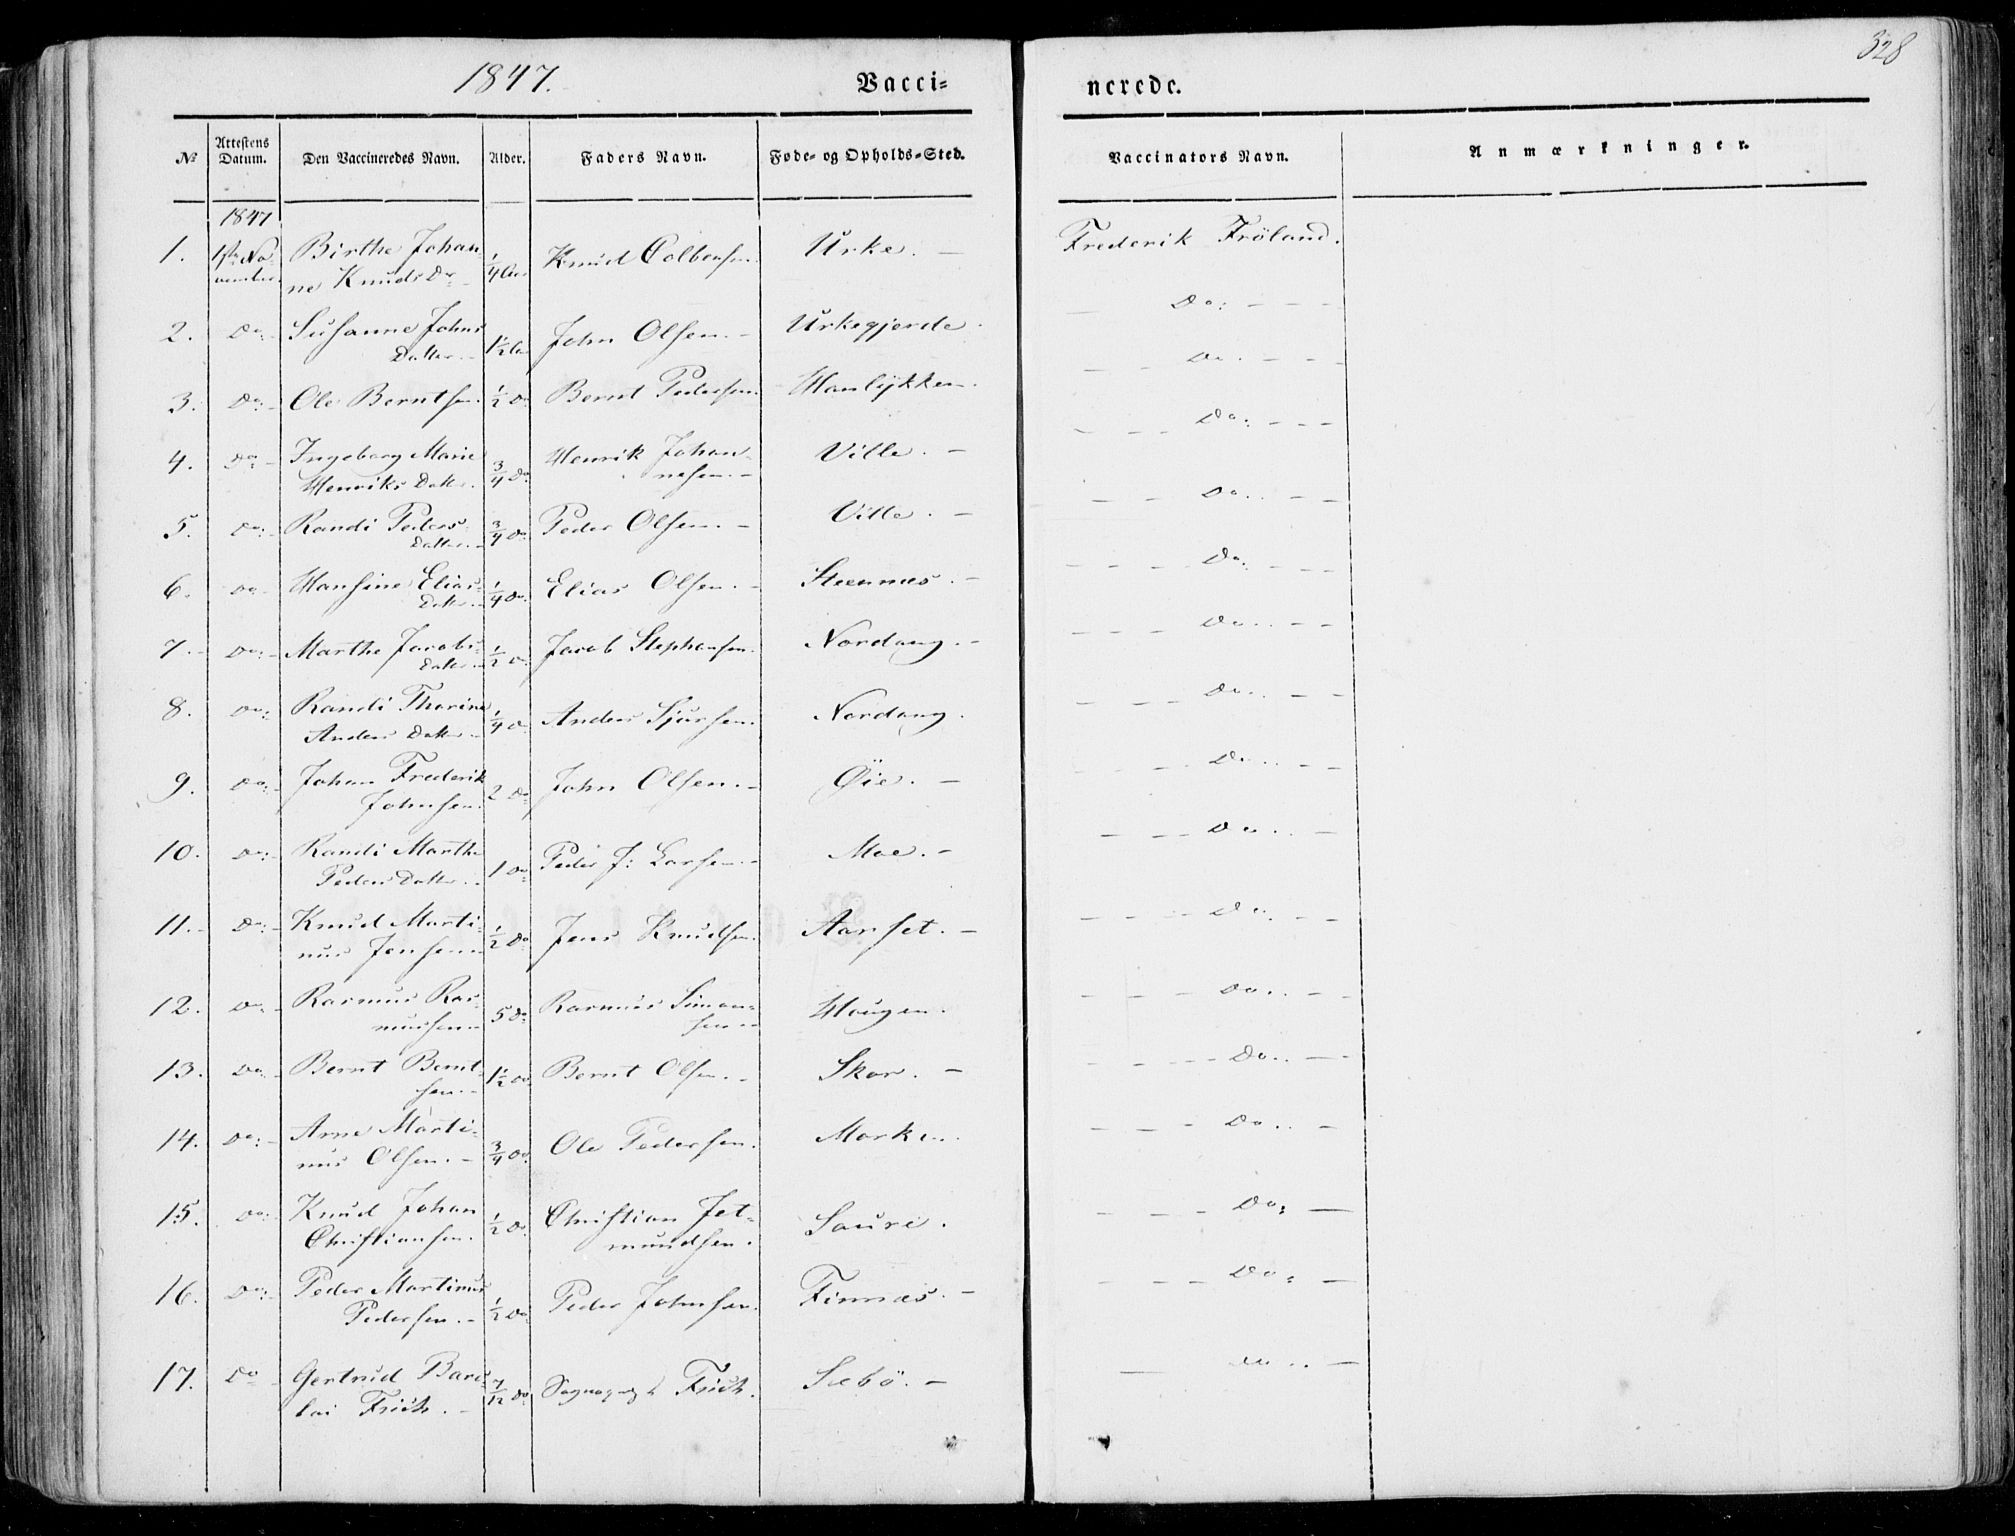 328
1847. Vacci= nerede.
№ Attestens Datum. Den Vaccineredes Navn. Alder. Faders Navn. Føde- og Opholds-Sted. Vaccinators Navn. Anmærkninger.
1847
1. No- Birthe Johan- 1/4 Knud Colbensen. Urke. — Frederik Fröland.
vember ne Knuds Dr.
2. Do: Susanne Johns 1 1/2 John Olsen. — Urkegjerde. Do: - - -
Datter. —
3. Do: Ole Berntsen. 1/2 Do Bernt Pedersen. Hanlykken. Do. - - -
4. Do Ingeborg Marie 3/4 Do Henrik Johan- Ville. — Do: - - -
Henriks Datter. nesen. —
5. Do: Randi Peders 3/4 Do Peder Olsen. — Ville. — Do. - -
Datter. —
6. Do Hansine Elias 1/4 Do. Elias Olsen. — Steennæs. — Do: - - -
Datter. —
7. Do: Marthe Jacobs 1/2 Do Jacob Stephensen. Nordang. — Do. - -
Datter
8. Do: Randi Thorine 1/4 Do Anders Sjursen. Nordang. Do. - -
Anders Datter —
9. Do: Johan Frederik 2 Do John Olsen. — Øie. — Do. - -
Johnsen.
10. Do: Randi Marthe 1 Do Peder J: Larsen. — Moe. — Do. -
Peders Datter.
11. Do: Knud Marti- 1/2 Do Jens Knudsen. Aarset. — Do. - -
nus Jensen
12. Do Rasmus Ras- 5 Do Rasmus Simon- Haugen. Do. - -
mussen sen
13. Do Bernt Bernt- 1 1/2 Do Bernt Olsen. — Skar. — Do. —
sen. —
14. Do: Arne Marti- 3/4 Do. Ole Pedersen. Mork Do. -
nus Olsen. —
15. Do: Knud Johan 1/2 Do. Christian Jet- Saure. Do: —
Christiansen. mundsen.
16. Do: Peder Martinus 1/2 Do Peder Johnsen. Finnæs. — Do: —
Pedersen. —
17. Do Gertrud Bar 7/12 Do Sognepræst Frich. Sæbö. — Do. —
Frich. —